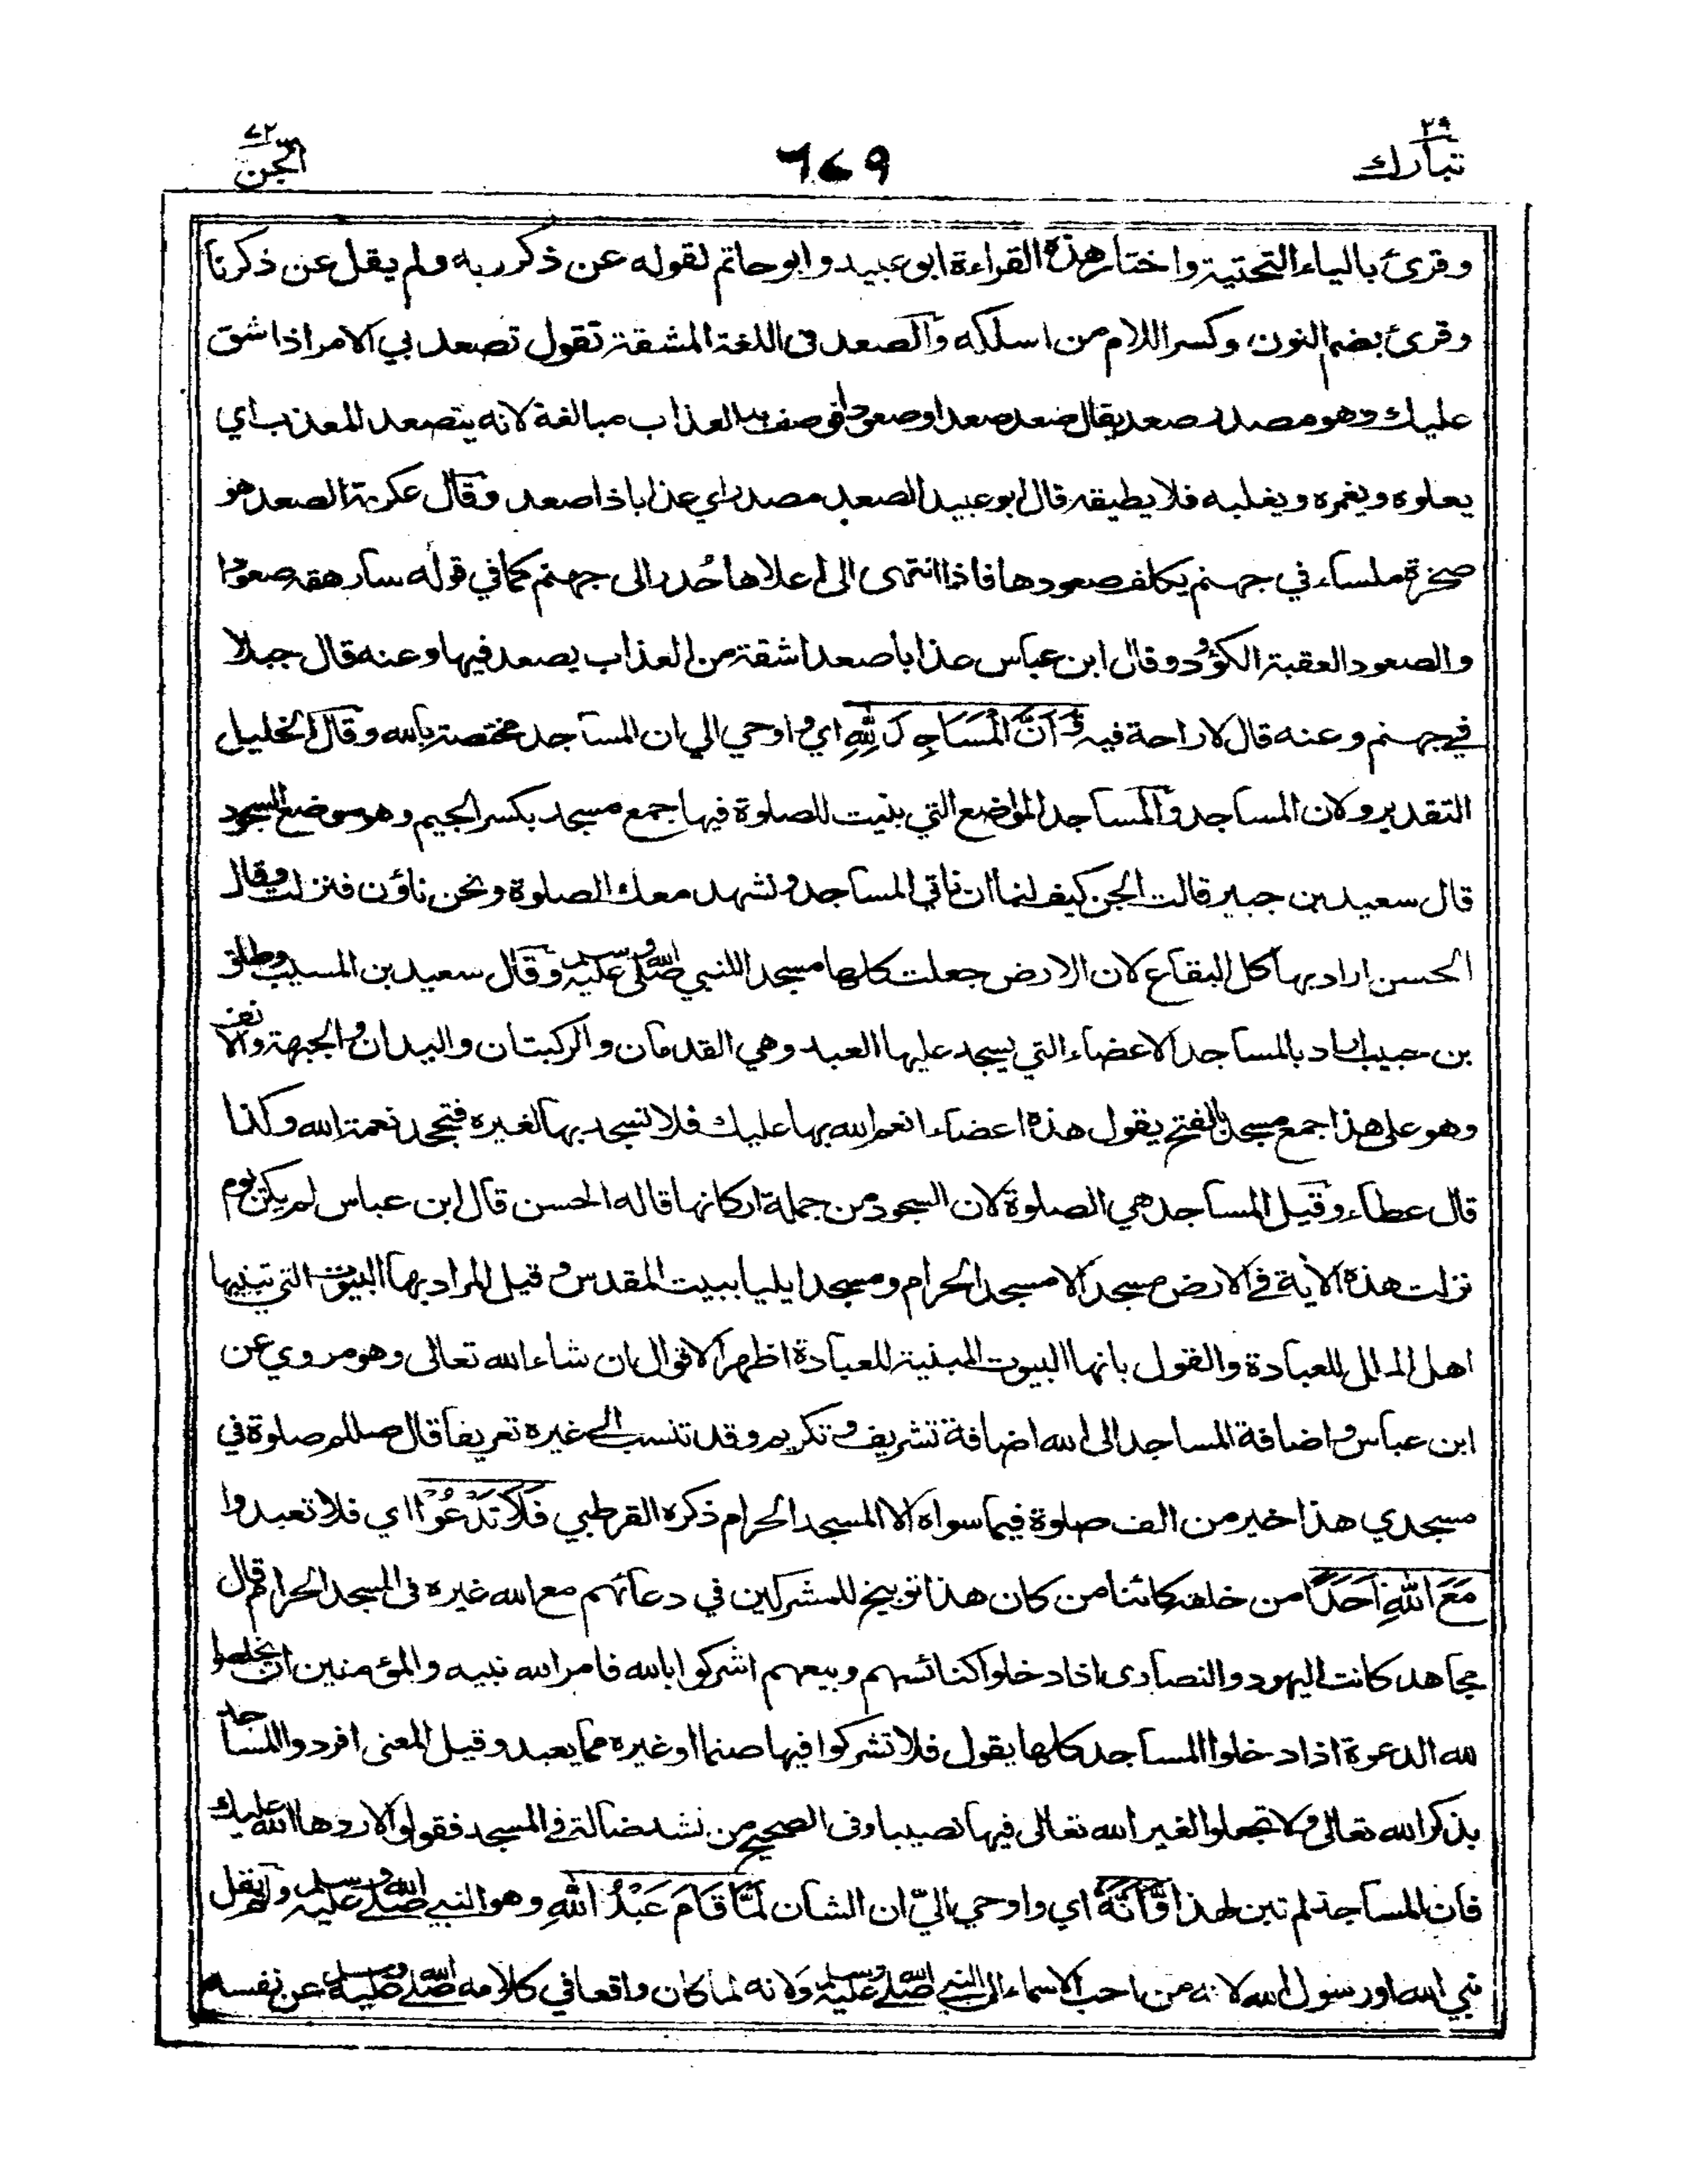 تبارك ٢٩
٦٧٩
الجن ٧٢
وقرئ بالياء التحتية واختار هذه القراءة ابو عبيد وابو حاتم لقوله عن ذكر ربه ولم يقل عن ذكرنا
وقرئ بضم النون وكسر اللام من اسلكه والصعد في اللغة المشقة تقول تصعد بي الامر اذا شق
عليك وهو مصدر صعد يقال صعد صعدا وصعودا فوصف به العذاب مبالغة لانه يتصعد المعذب اي
يعلوه ويغمره ويغلبه فلا يطيقه قال ابو عبيد الصعد مصدر اي عذابا ذا صعد وقال عكرمة الصعد هو
صخرة ملساء في جهنم يكلف صعودها فاذا انتهى الى اعلاها حُدر الى جهنم كما في قوله سارهقه صعودا
والصعود العقبة الكؤد وقال ابن عباس عذابا صعدا شقة من العذاب يصعد فيها وعنه قال جبلا
في جهنم وعنه قال لا راحة فيه وَّاَنَّ الْمَسَاجِدَ لِلّٰهِ اي واوحي الي ان المساجد مختصة بالله وقال الخليل
التقدير ولان المساجد والمساجد المواضع التي بنيت للصلوة فيها جمع مسجد بكسر الجيم وهو موضع السجود
قال سعيد بن جبير قالت الجن كيف لنا ان ناتي المساجد ونشهد معك الصلوة ونحن ناؤن فنزلت وقال
الحسن اراد بها كل البقاع لان الارض جعلت كلها مسجدا للنبي صلى الله عليه وسلم وقال سعيد بن المسيب وطلق
بن حبيب اراد بالمساجد الاعضاء التي يسجد عليها العبد وهي القدمان والركبتان واليدان والجبهة والانف
وهو على هذا جمع مسجد بالفتح يقول هذه اعضاء انعم الله بها عليك فلا تسجد بها لغيره فتجحد نعمة الله وكذا
قال عطاء وقيل المساجد هي الصلوة لان السجود من جملة اركانها قاله الحسن قال ابن عباس لم يكن يوم
نزلت هذه الاية في الارض مسجد الا مسجد الحرام ومسجد ايليا ببيت المقدس وقيل المراد بها البيوت التي تبنيها
اهل الملل للعبادة والقول بانها البيوت المبنية للعبادة اظهر الاقوال ان شاء الله تعالى وهو مروي عن
ابن عباس واضافة المساجد الى الله اضافة تشريف وتكريم وقد تنسب الى غيره تعريفا قال صللم صلوة في
مسجدي هذا خير من الف صلوة فيما سواه الا المسجد الحرام ذكره القرطبي فَلَا تَدْعُوْا اي فلا تعبدوا
مَعَ اللّٰهِ اَحَدًا من خلقه كائنا من كان هذا توبيخ للمشركين في دعائهم مع الله غيره في المسجد الحرام قال
مجاهد كانت اليهود والنصارى اذا دخلوا كنائسهم وبيعهم اشركوا بالله فامر الله نبيه والمؤمنين ان يخلصوا
لله الدعوة اذا دخلوا المساجد كلها يقول فلا تشركوا فيها صنما او غيره مما يعبد وقيل المعنى افردوا المساجد
بذكر الله تعالى ولا تجعلوا لغير الله تعالى فيها نصيبا وفي الصحيح من نشد ضالة في المسجد فقولوا لا ردها الله عليك
فان المساجد لم تبن لهذا وَّاَنَّهٗ اي واوحي الىّ ان الشان لَمَّا قَامَ عَبْدُ اللّٰهِ وهو النبي صلى الله عليه وسلم ولم يقل
نبي الله او رسول الله لانه من احب الاسماء الى النبي صلى الله عليه وسلم ولانه لما كان واقعا في كلامه صلى الله عليه وسلم عن نفسه